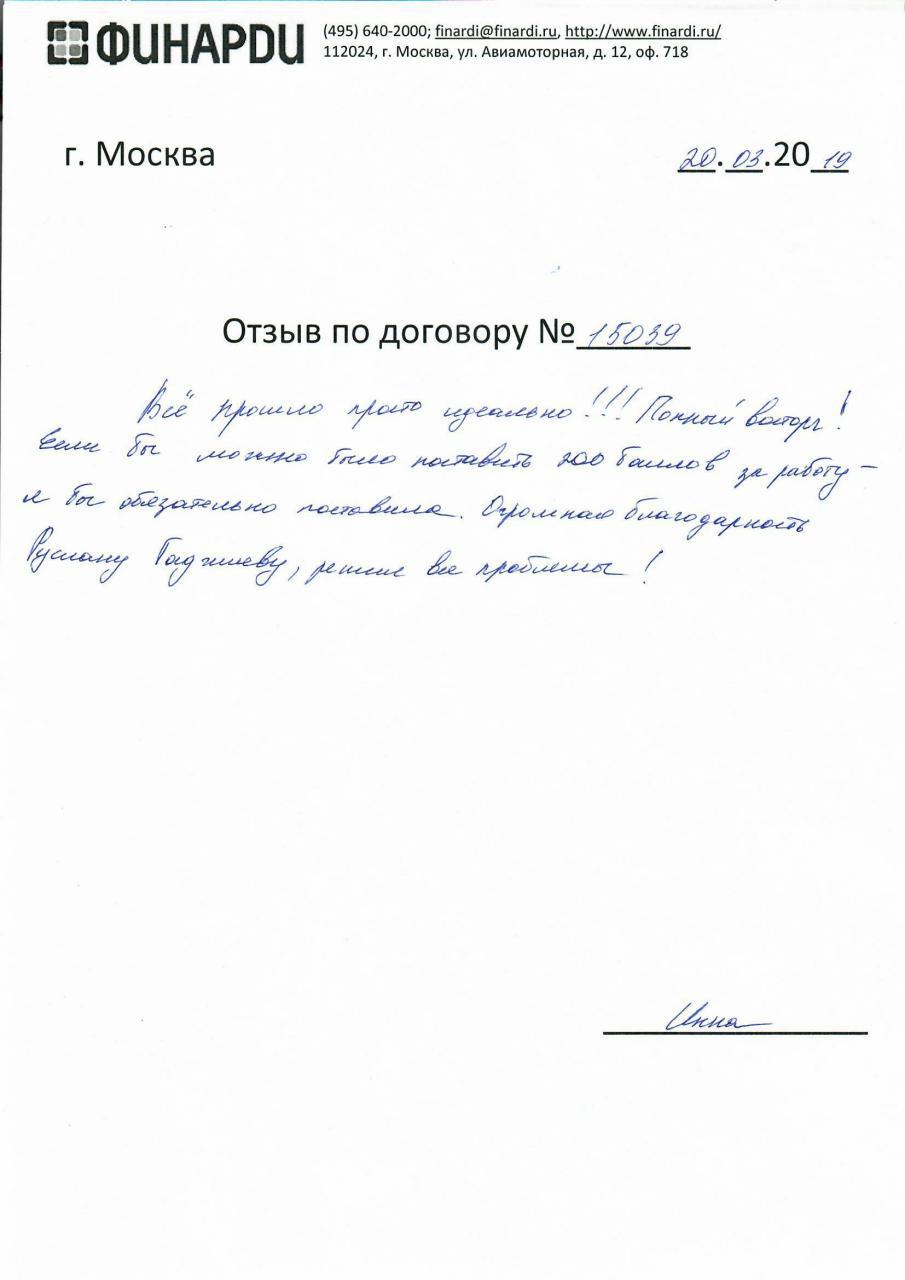 ФИНАРDИ
(495) 640-2000; finardi@finardi.ru, http://www.finardi.ru/
112024, г. Москва, ул. Авиамоторная, д. 12, оф. 718
г. Москва
20.03.2019
Отзыв по договору № 15039
Всё прошло просто идеально!!! Полный восторг!
Если бы можно было поставить 200 баллов за работу –
я бы обязательно поставила. Огромная благодарность
Руслану Гаджиеву, решил все проблемы!
Инна